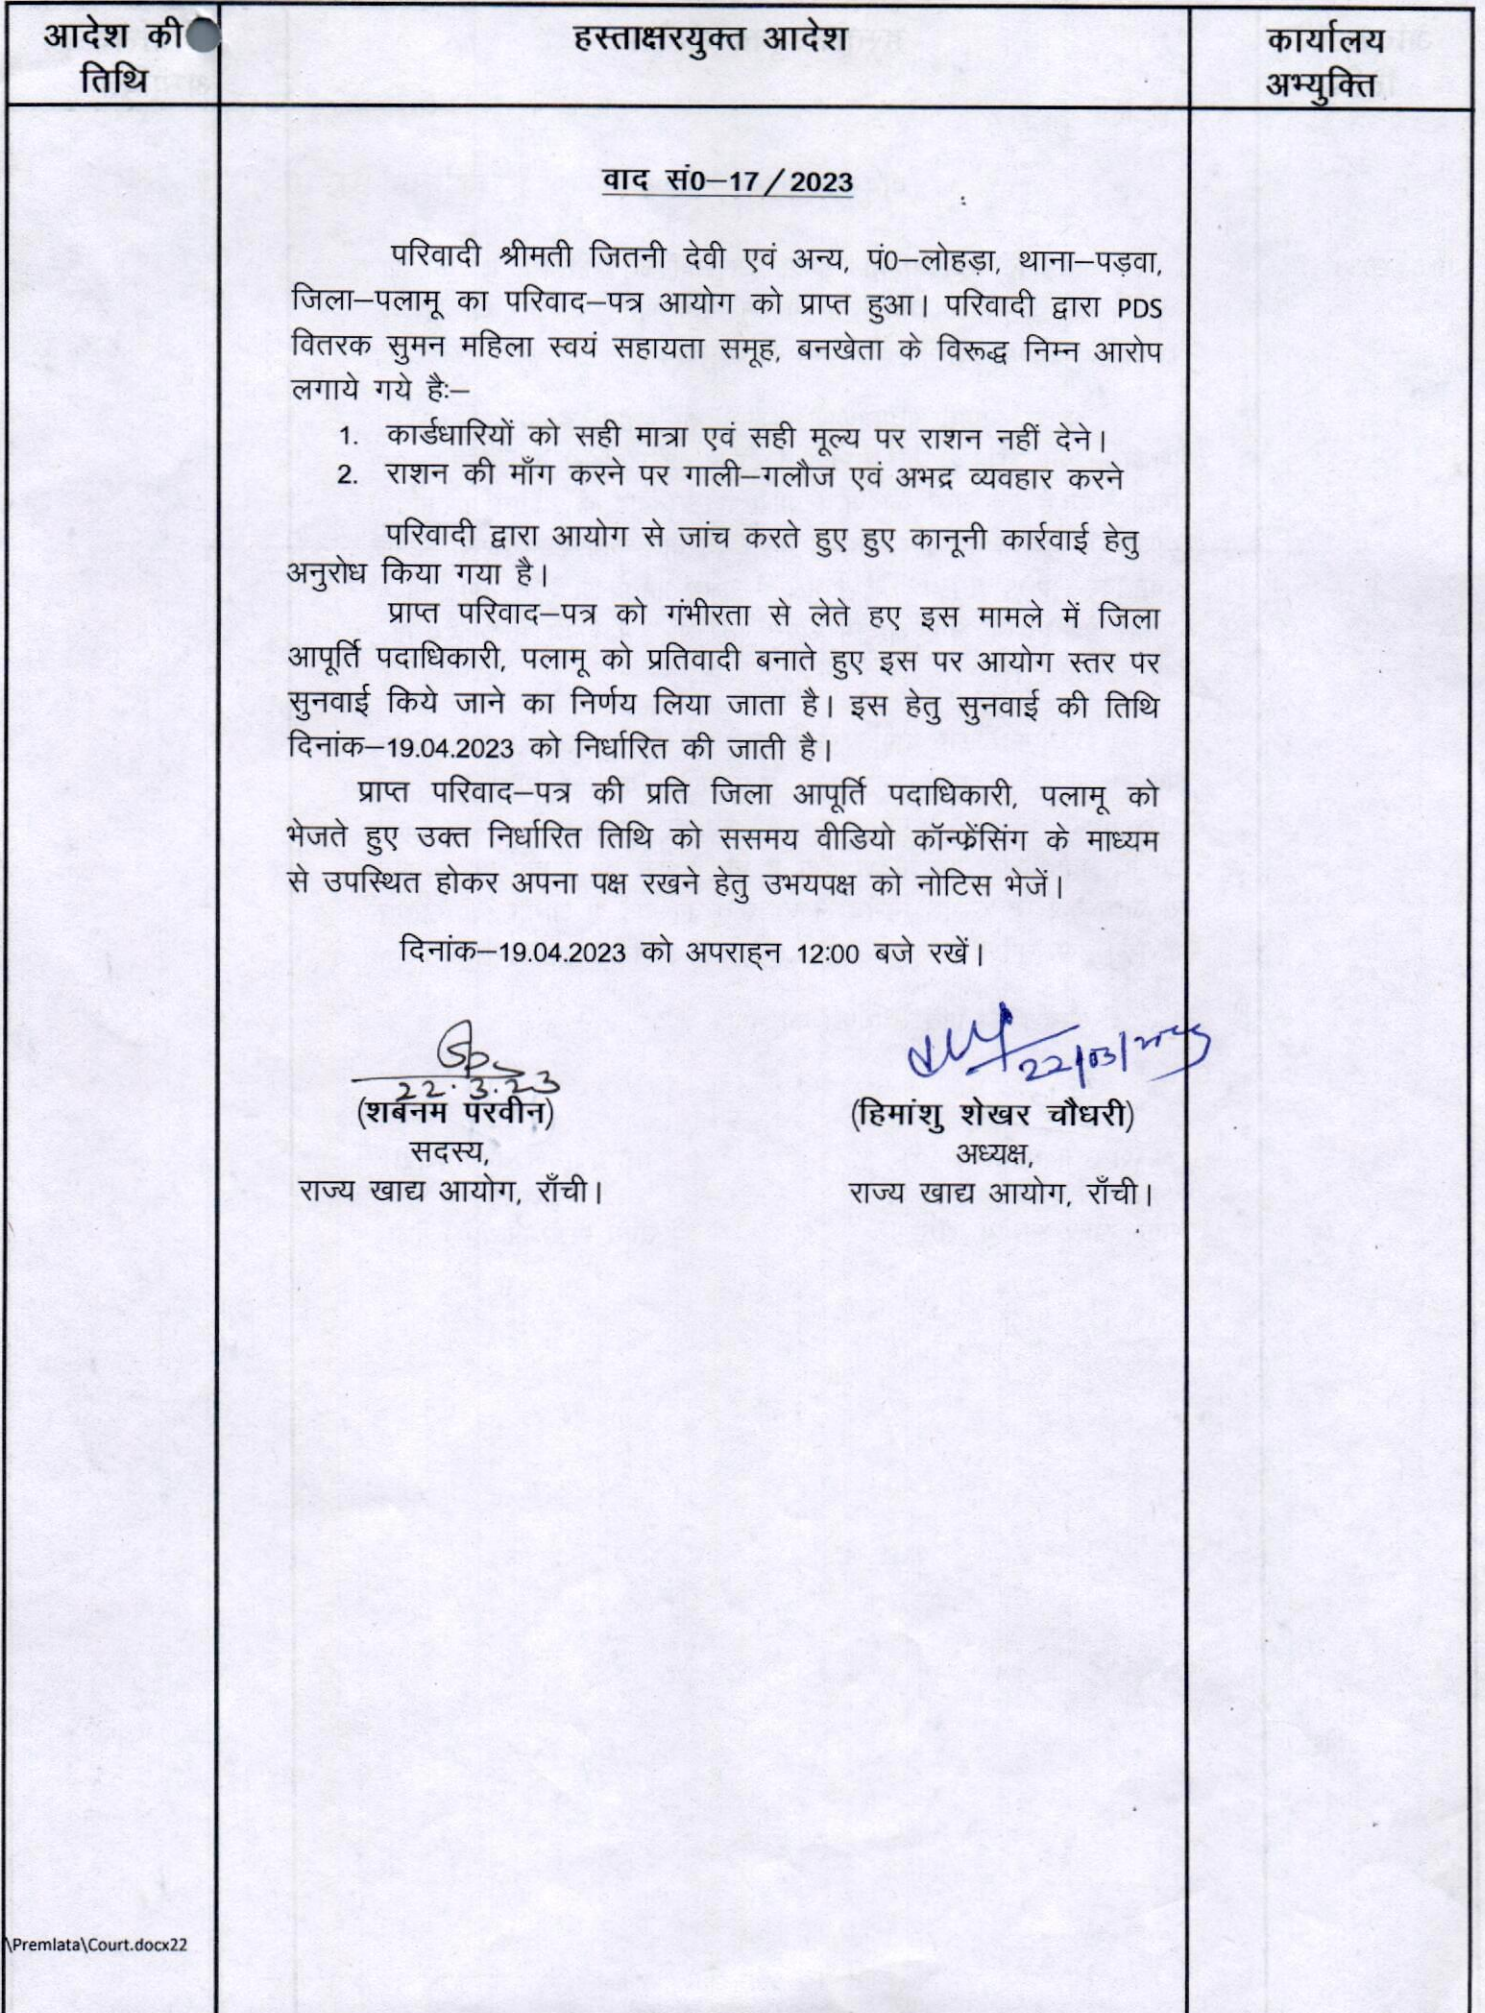 आदेश की
तिथि
हस्ताक्षरयुक्त आदेश
कार्यालय
अभ्युक्ति
वाद सं0–17 / 2023
परिवादी श्रीमती जितनी देवी एवं अन्य, पं0–लोहड़ा, थाना–पड़वा,
जिला–पलामू का परिवाद–पत्र आयोग को प्राप्त हुआ। परिवादी द्वारा PDS
वितरक सुमन महिला स्वयं सहायता समूह, बनखेता के विरूद्ध निम्न आरोप
लगाये गये हैः–
1. कार्डधारियों को सही मात्रा एवं सही मूल्य पर राशन नहीं देने।
2. राशन की माँग करने पर गाली–गलौज एवं अभद्र व्यवहार करने
परिवादी द्वारा आयोग से जांच करते हुए हुए कानूनी कार्रवाई हेतु
अनुरोध किया गया है।
प्राप्त परिवाद–पत्र को गंभीरता से लेते हए इस मामले में जिला
आपूर्ति पदाधिकारी, पलामू को प्रतिवादी बनाते हुए इस पर आयोग स्तर पर
सुनवाई किये जाने का निर्णय लिया जाता है। इस हेतु सुनवाई की तिथि
दिनांक–19.04.2023 को निर्धारित की जाती है।
प्राप्त परिवाद–पत्र की प्रति जिला आपूर्ति पदाधिकारी, पलामू को
भेजते हुए उक्त निर्धारित तिथि को ससमय वीडियो कॉन्फ्रेंसिंग के माध्यम
से उपस्थित होकर अपना पक्ष रखने हेतु उभयपक्ष को नोटिस भेजें।
दिनांक–19.04.2023 को अपराह्न 12:00 बजे रखें।
22.3.23
22/03/2023
(शबनम परवीन)
(हिमांशु शेखर चौधरी)
सदस्य,
अध्यक्ष,
राज्य खाद्य आयोग, राँची।
राज्य खाद्य आयोग, राँची।
\Premlata\Court.docx22